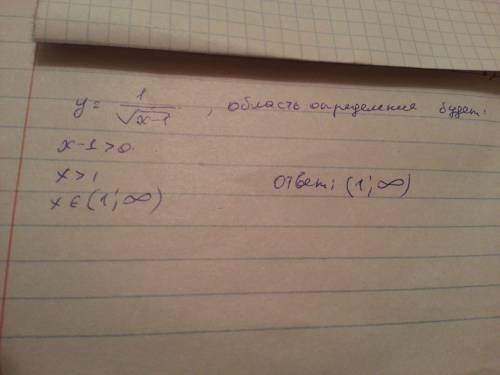 y = 1/√x-1 , область определения будет:
x-1>0
x>1
x ∈ (1; ∞)
Ответ: (1; ∞)